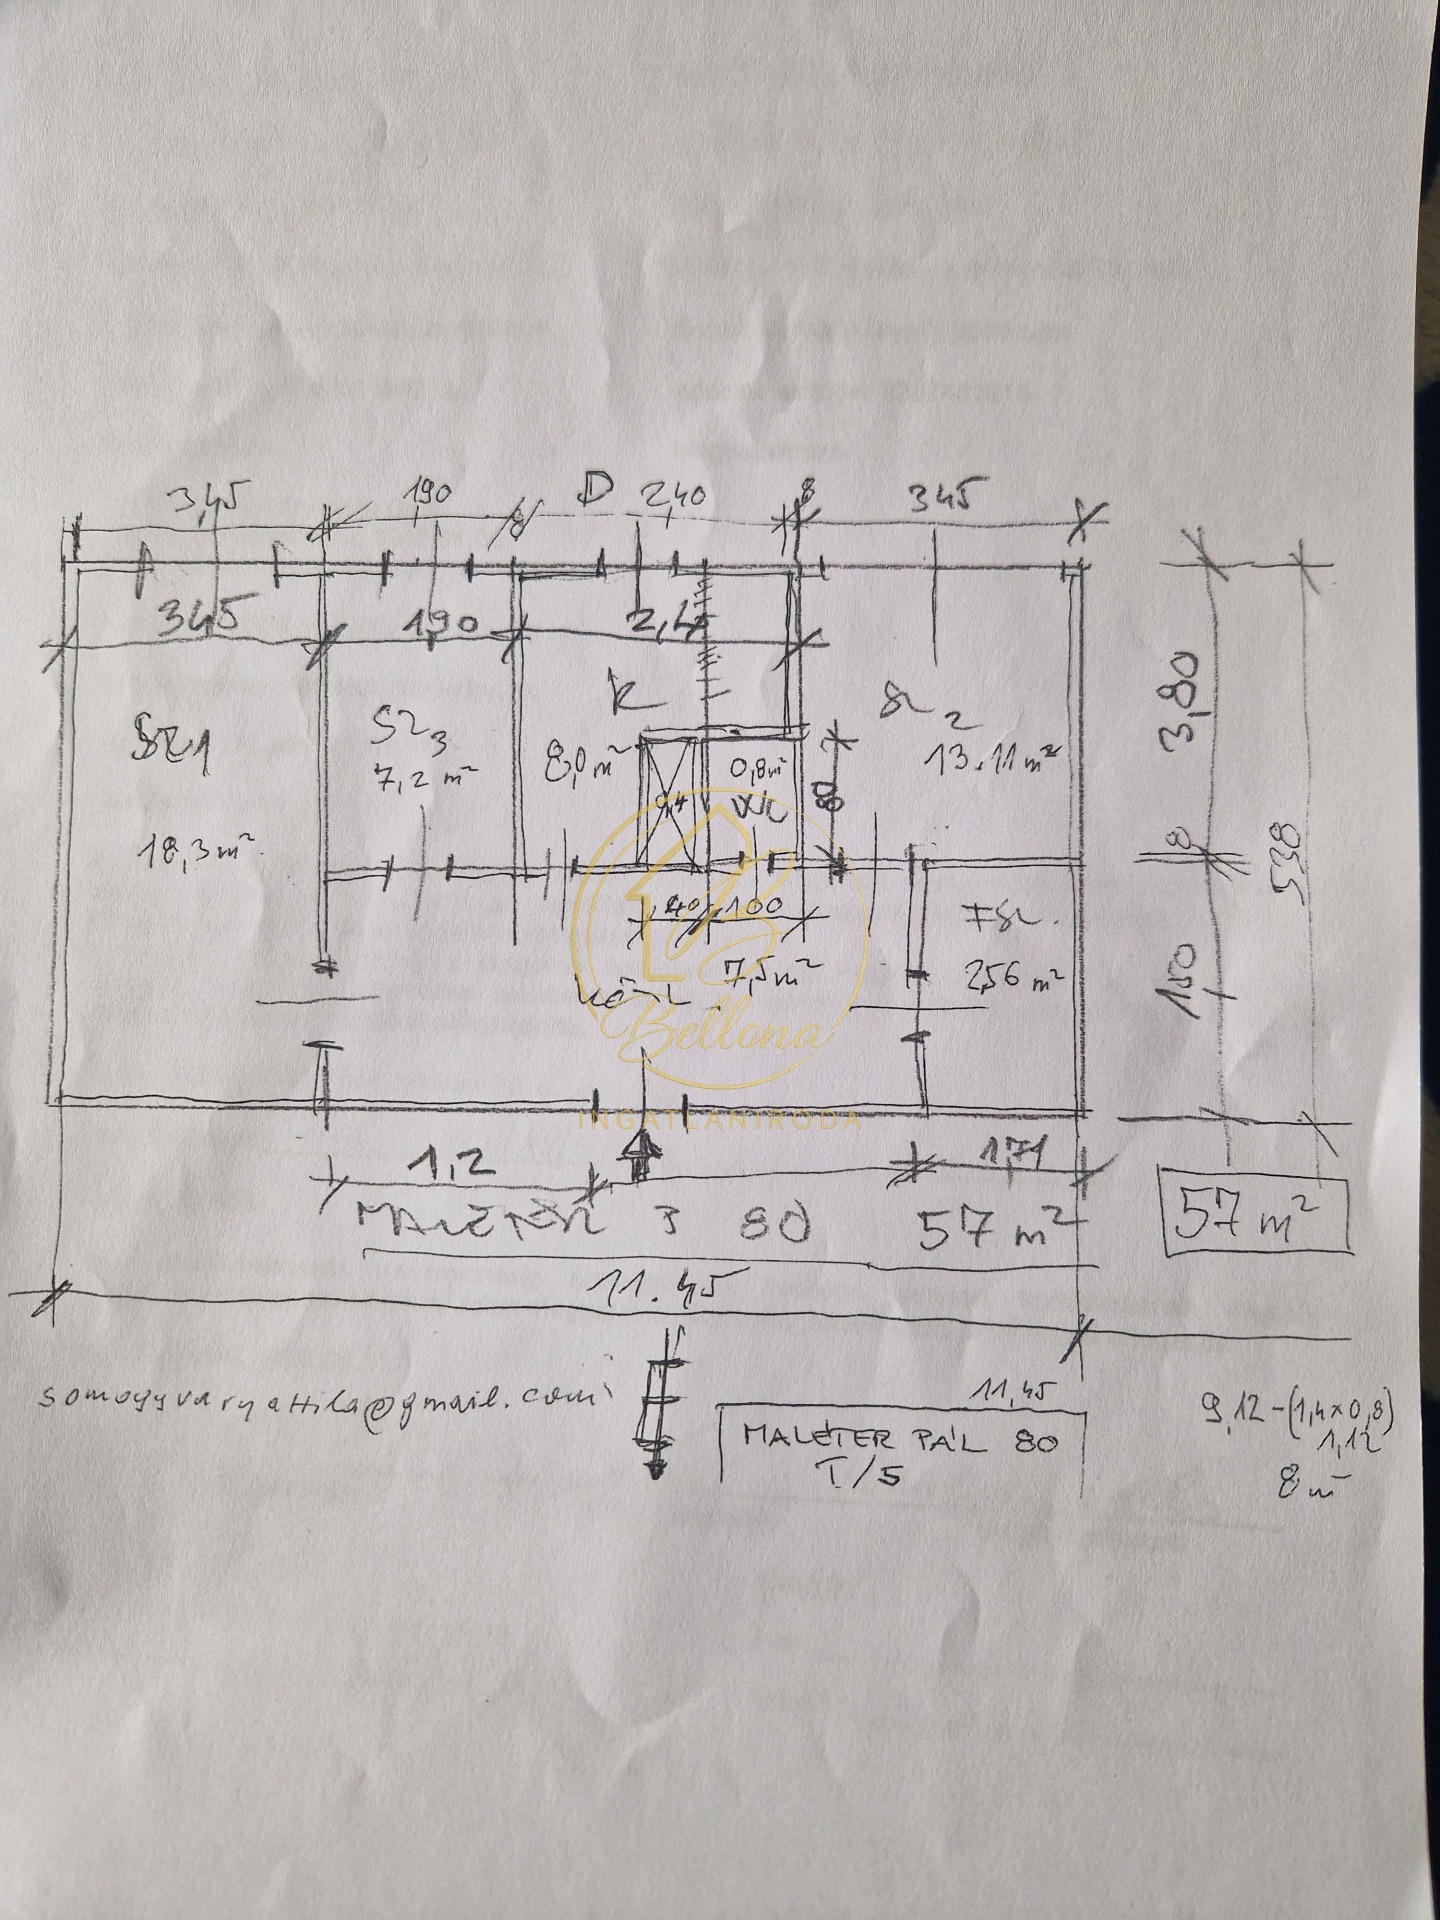 3,45 190 D 2,40 8 345
8
345 190 2,4
K
SZ1 SZ3 SZ 2
7,2 m² 8,0 m² 0,8 m² 13.11 m²
WC
0,4
18,3 m²
80
3,80
8
538
150
40 100
FSZ.
7,5 m² 2,56 m²
KÖZL.
Bellona
INGATLANIRODA
1,2 1,71
MALÉTER 3 80 57 m²
57 m²
11.45
somogyvaryattila@gmail.com
11,45
MALÉTER PÁL 80
I/5
9,12-(1,4×0,8)
1,12
8 m²